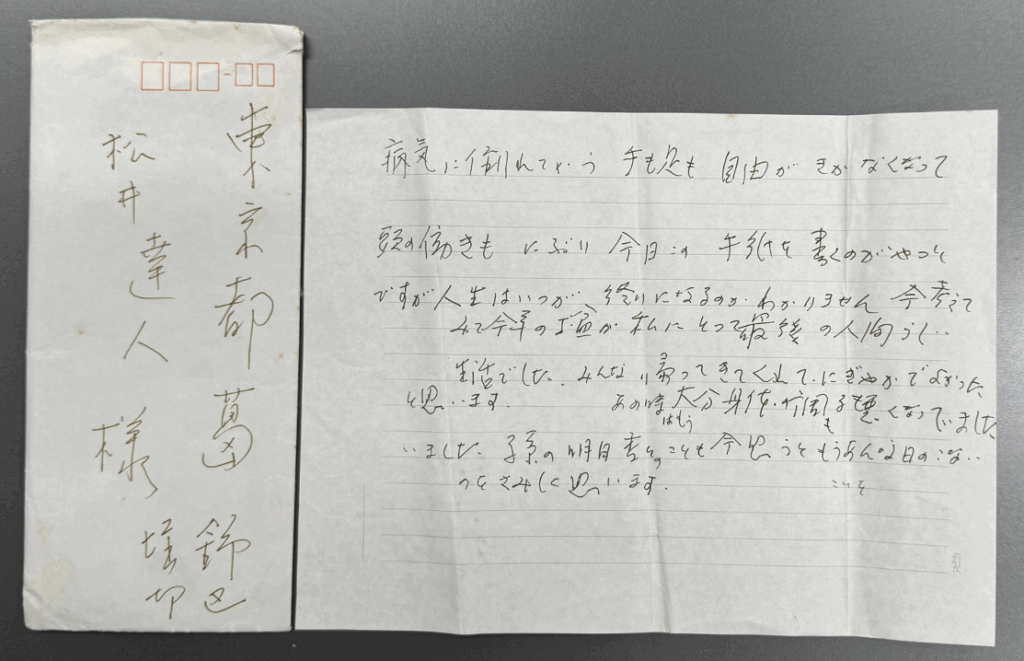 東京都葛飾区
松井達人様
病気に倒れてという 手も足も 自由が きかなくなって
頭の働きも にぶり 今日この 手紙を 書くのがやっと
ですが人生はいつが 終りになるのか わかりません 今考えて
みて今年の盆が 私にとって最後 の人間らしい
生活でした、みんな帰ってきてくれて、にぎやかでよかった
と思います。 あの時はもう大分身体の調子も悪くなっていました
いました 子孫の もうあんな日のこない
ことをさみしく思います。